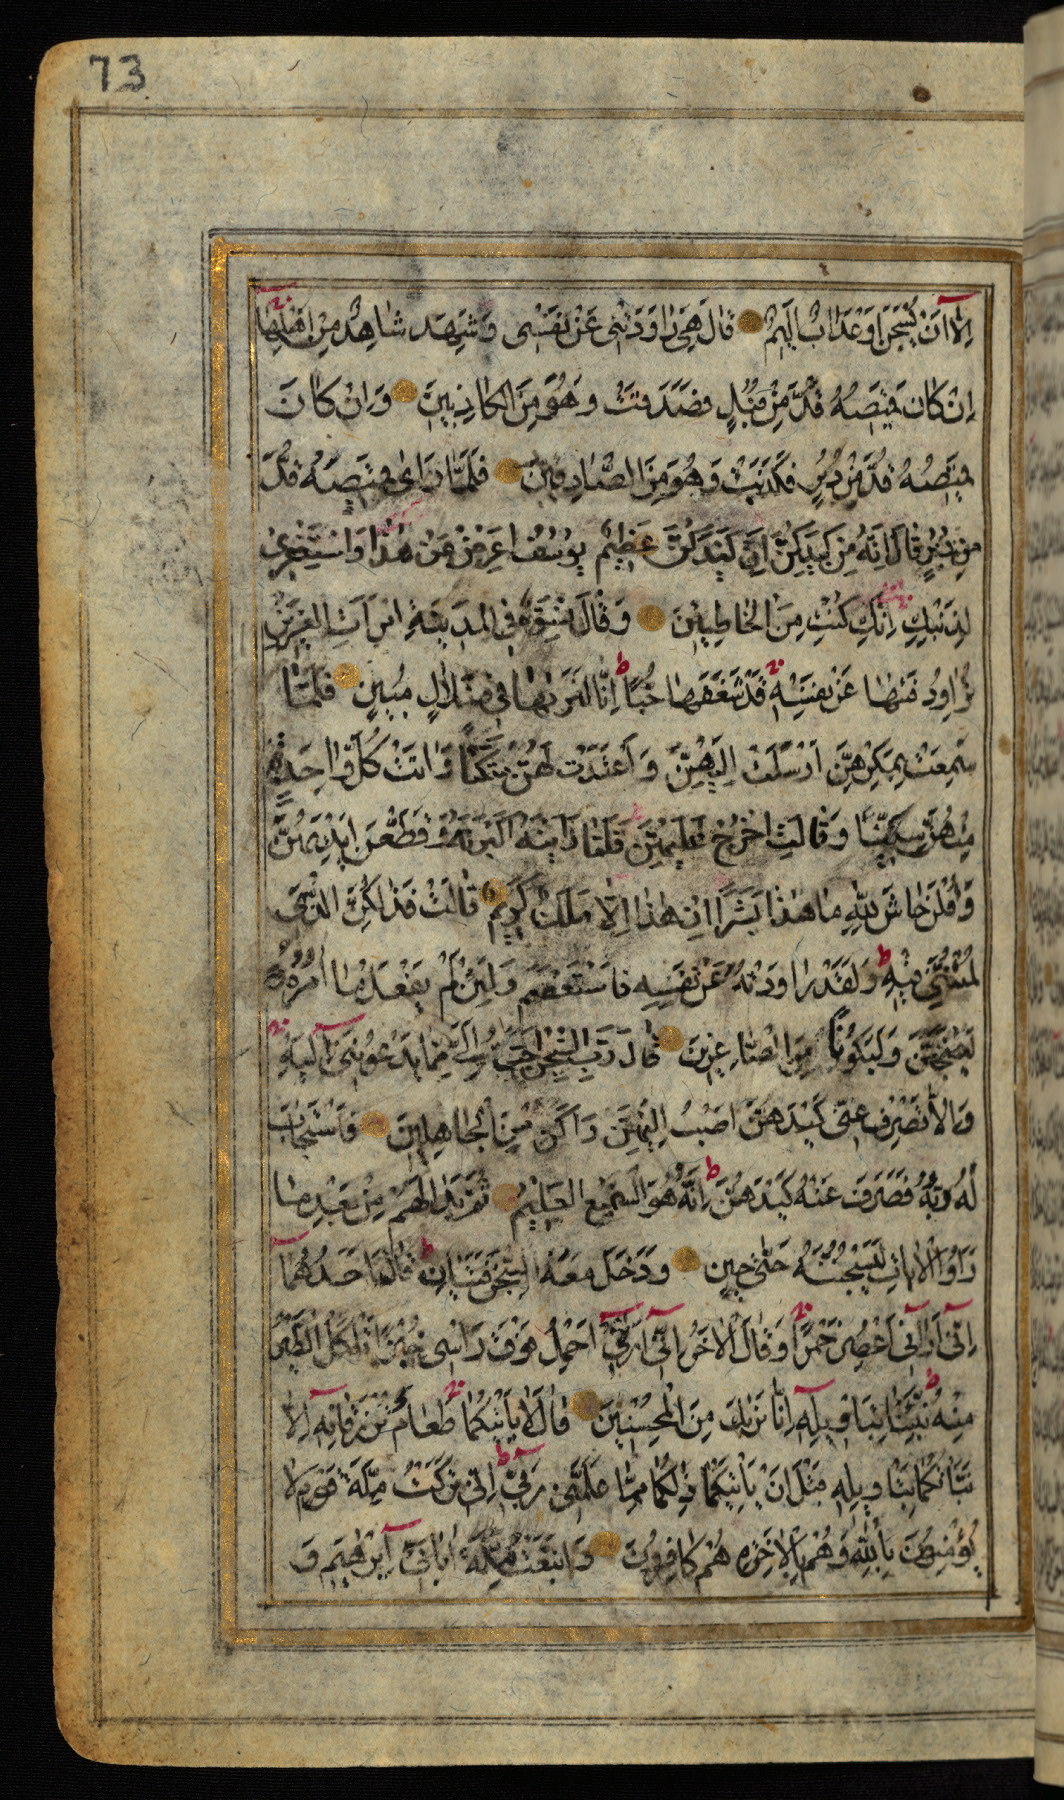 73
اِلَّا اَنْ يُسْجَنَ اَوْ عَذَابٌ اَلِيمٌ قَالَ هِيَ رَاوَدَتْنِي عَنْ نَفْسِي وَشَهِدَ شَاهِدٌ مِنْ اَهْلِهَا
اِنْ كَانَ قَمِيصُهُ قُدَّ مِنْ قُبُلٍ فَصَدَقَتْ وَهُوَ مِنَ الْكَاذِبِينَ وَاِنْ كَانَ
قَمِيصُهُ قُدَّ مِنْ دُبُرٍ فَكَذَبَتْ وَهُوَ مِنَ الصَّادِقِينَ فَلَمَّا رَاٰى قَمِيصَهُ قُدَّ
مِنْ دُبُرٍ قَالَ اِنَّهُ مِنْ كَيْدِكُنَّ اِنَّ كَيْدَكُنَّ عَظِيمٌ يُوسُفُ اَعْرِضْ عَنْ هٰذَا وَاسْتَغْفِرِي
لِذَنْبِكِ اِنَّكِ كُنْتِ مِنَ الْخَاطِئِينَ وَقَالَ نِسْوَةٌ فِي الْمَدِينَةِ امْرَاَتُ الْعَزِيزِ
تُرَاوِدُ فَتٰهَا عَنْ نَفْسِهِ قَدْ شَغَفَهَا حُبًّا اِنَّا لَنَرٰيهَا فِي ضَلَالٍ مُبِينٍ فَلَمَّا
سَمِعَتْ بِمَكْرِهِنَّ اَرْسَلَتْ اِلَيْهِنَّ وَاَعْتَدَتْ لَهُنَّ مُتَّكَئًا وَاٰتَتْ كُلَّ وَاحِدَةٍ
مِنْهُنَّ سِكِّينًا وَقَالَتِ اخْرُجْ عَلَيْهِنَّ فَلَمَّا رَاَيْنَهُ اَكْبَرْنَهُ وَقَطَّعْنَ اَيْدِيَهُنَّ
وَقُلْنَ حَاشَ لِلّٰهِ مَا هٰذَا بَشَرًا اِنْ هٰذَا اِلَّا مَلَكٌ كَرِيمٌ قَالَتْ فَذٰلِكُنَّ الَّذِي
لُمْتُنَّنِي فِيهِ وَلَقَدْ رَاوَدْتُهُ عَنْ نَفْسِهِ فَاسْتَعْصَمَ وَلَئِنْ لَمْ يَفْعَلْ مَا اٰمُرُهُ
لَيُسْجَنَنَّ وَلَيَكُونًا مِنَ الصَّاغِرِينَ قَالَ رَبِّ السِّجْنُ اَحَبُّ اِلَيَّ مِمَّا يَدْعُونَنِي اِلَيْهِ
وَاِلَّا تَصْرِفْ عَنِّي كَيْدَهُنَّ اَصْبُ اِلَيْهِنَّ وَاَكُنْ مِنَ الْجَاهِلِينَ فَاسْتَجَابَ
لَهُ رَبُّهُ فَصَرَفَ عَنْهُ كَيْدَهُنَّ اِنَّهُ هُوَ السَّمِيعُ الْعَلِيمُ ثُمَّ بَدَا لَهُمْ مِنْ بَعْدِ مَا
رَاَوُا الْاٰيَاتِ لَيَسْجُنُنَّهُ حَتّٰى حِينٍ وَدَخَلَ مَعَهُ السِّجْنَ فَتَيَانِ قَالَ اَحَدُهُمَا
اِنِّي اَرٰانِي اَعْصِرُ خَمْرًا وَقَالَ الْاٰخَرُ اِنِّي اَرٰانِي اَحْمِلُ فَوْقَ رَاْسِي خُبْزًا تَاْكُلُ الطَّيْرُ
مِنْهُ نَبِّئْنَا بِتَاْوِيلِهِ اِنَّا نَرٰيكَ مِنَ الْمُحْسِنِينَ قَالَ لَا يَاْتِيكُمَا طَعَامٌ تُرْزَقَانِهِ اِلَّا
نَبَّاْتُكُمَا بِتَاْوِيلِهِ قَبْلَ اَنْ يَاْتِيَكُمَا ذٰلِكُمَا مِمَّا عَلَّمَنِي رَبِّي اِنِّي تَرَكْتُ مِلَّةَ قَوْمٍ لَا
يُؤْمِنُونَ بِاللّٰهِ وَهُمْ بِالْاٰخِرَةِ هُمْ كَافِرُونَ وَاتَّبَعْتُ مِلَّةَ اٰبَائِي اِبْرٰهِيمَ وَ